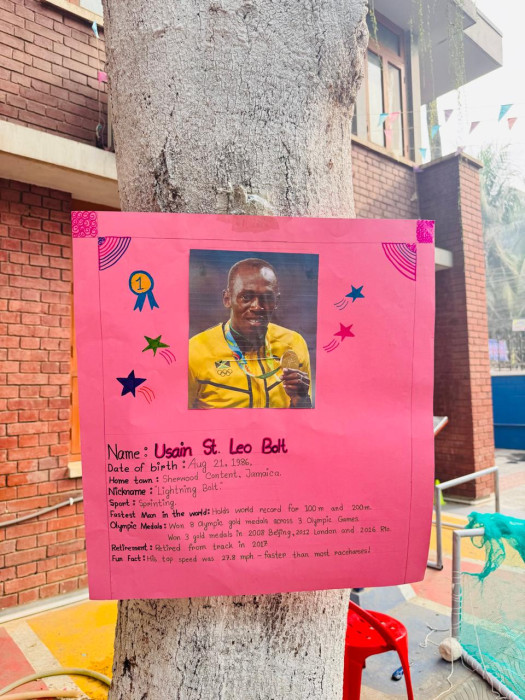 1
Name: Usain St. Leo Bolt
Date of birth: Aug 21, 1986.
Home town: Sherwood Content, Jamaica.
Nickname: 'Lightning Bolt'
Sport: Sprinting.
Fastest Man in the world: Holds world record for 100m and 200m.
Olympic Medals: Won 8 Olympic gold medals across 3 Olympic Games
Won 3 gold medals in 2008 Beijing, 2012 London and 2016 Rio.
Retirement: Retired from track in 2017
Fun Fact: His top speed was 27.8 mph - faster than most racehorses!